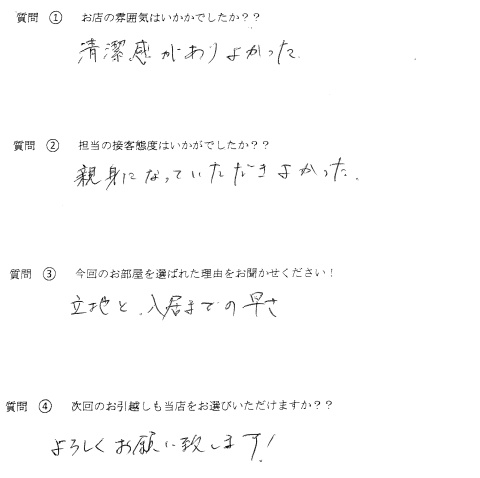 質問 ① お店の雰囲気はいかかでしたか？？
清潔感がありよかった
質問 ② 担当の接客態度はいかがでしたか？？
親身になっていただきよかった。
質問 ③ 今回のお部屋を選ばれた理由をお聞かせください！
立地と、入居までの早さ
質問 ④ 次回のお引越しも当店をお選びいただけますか？？
よろしくお願い致します！